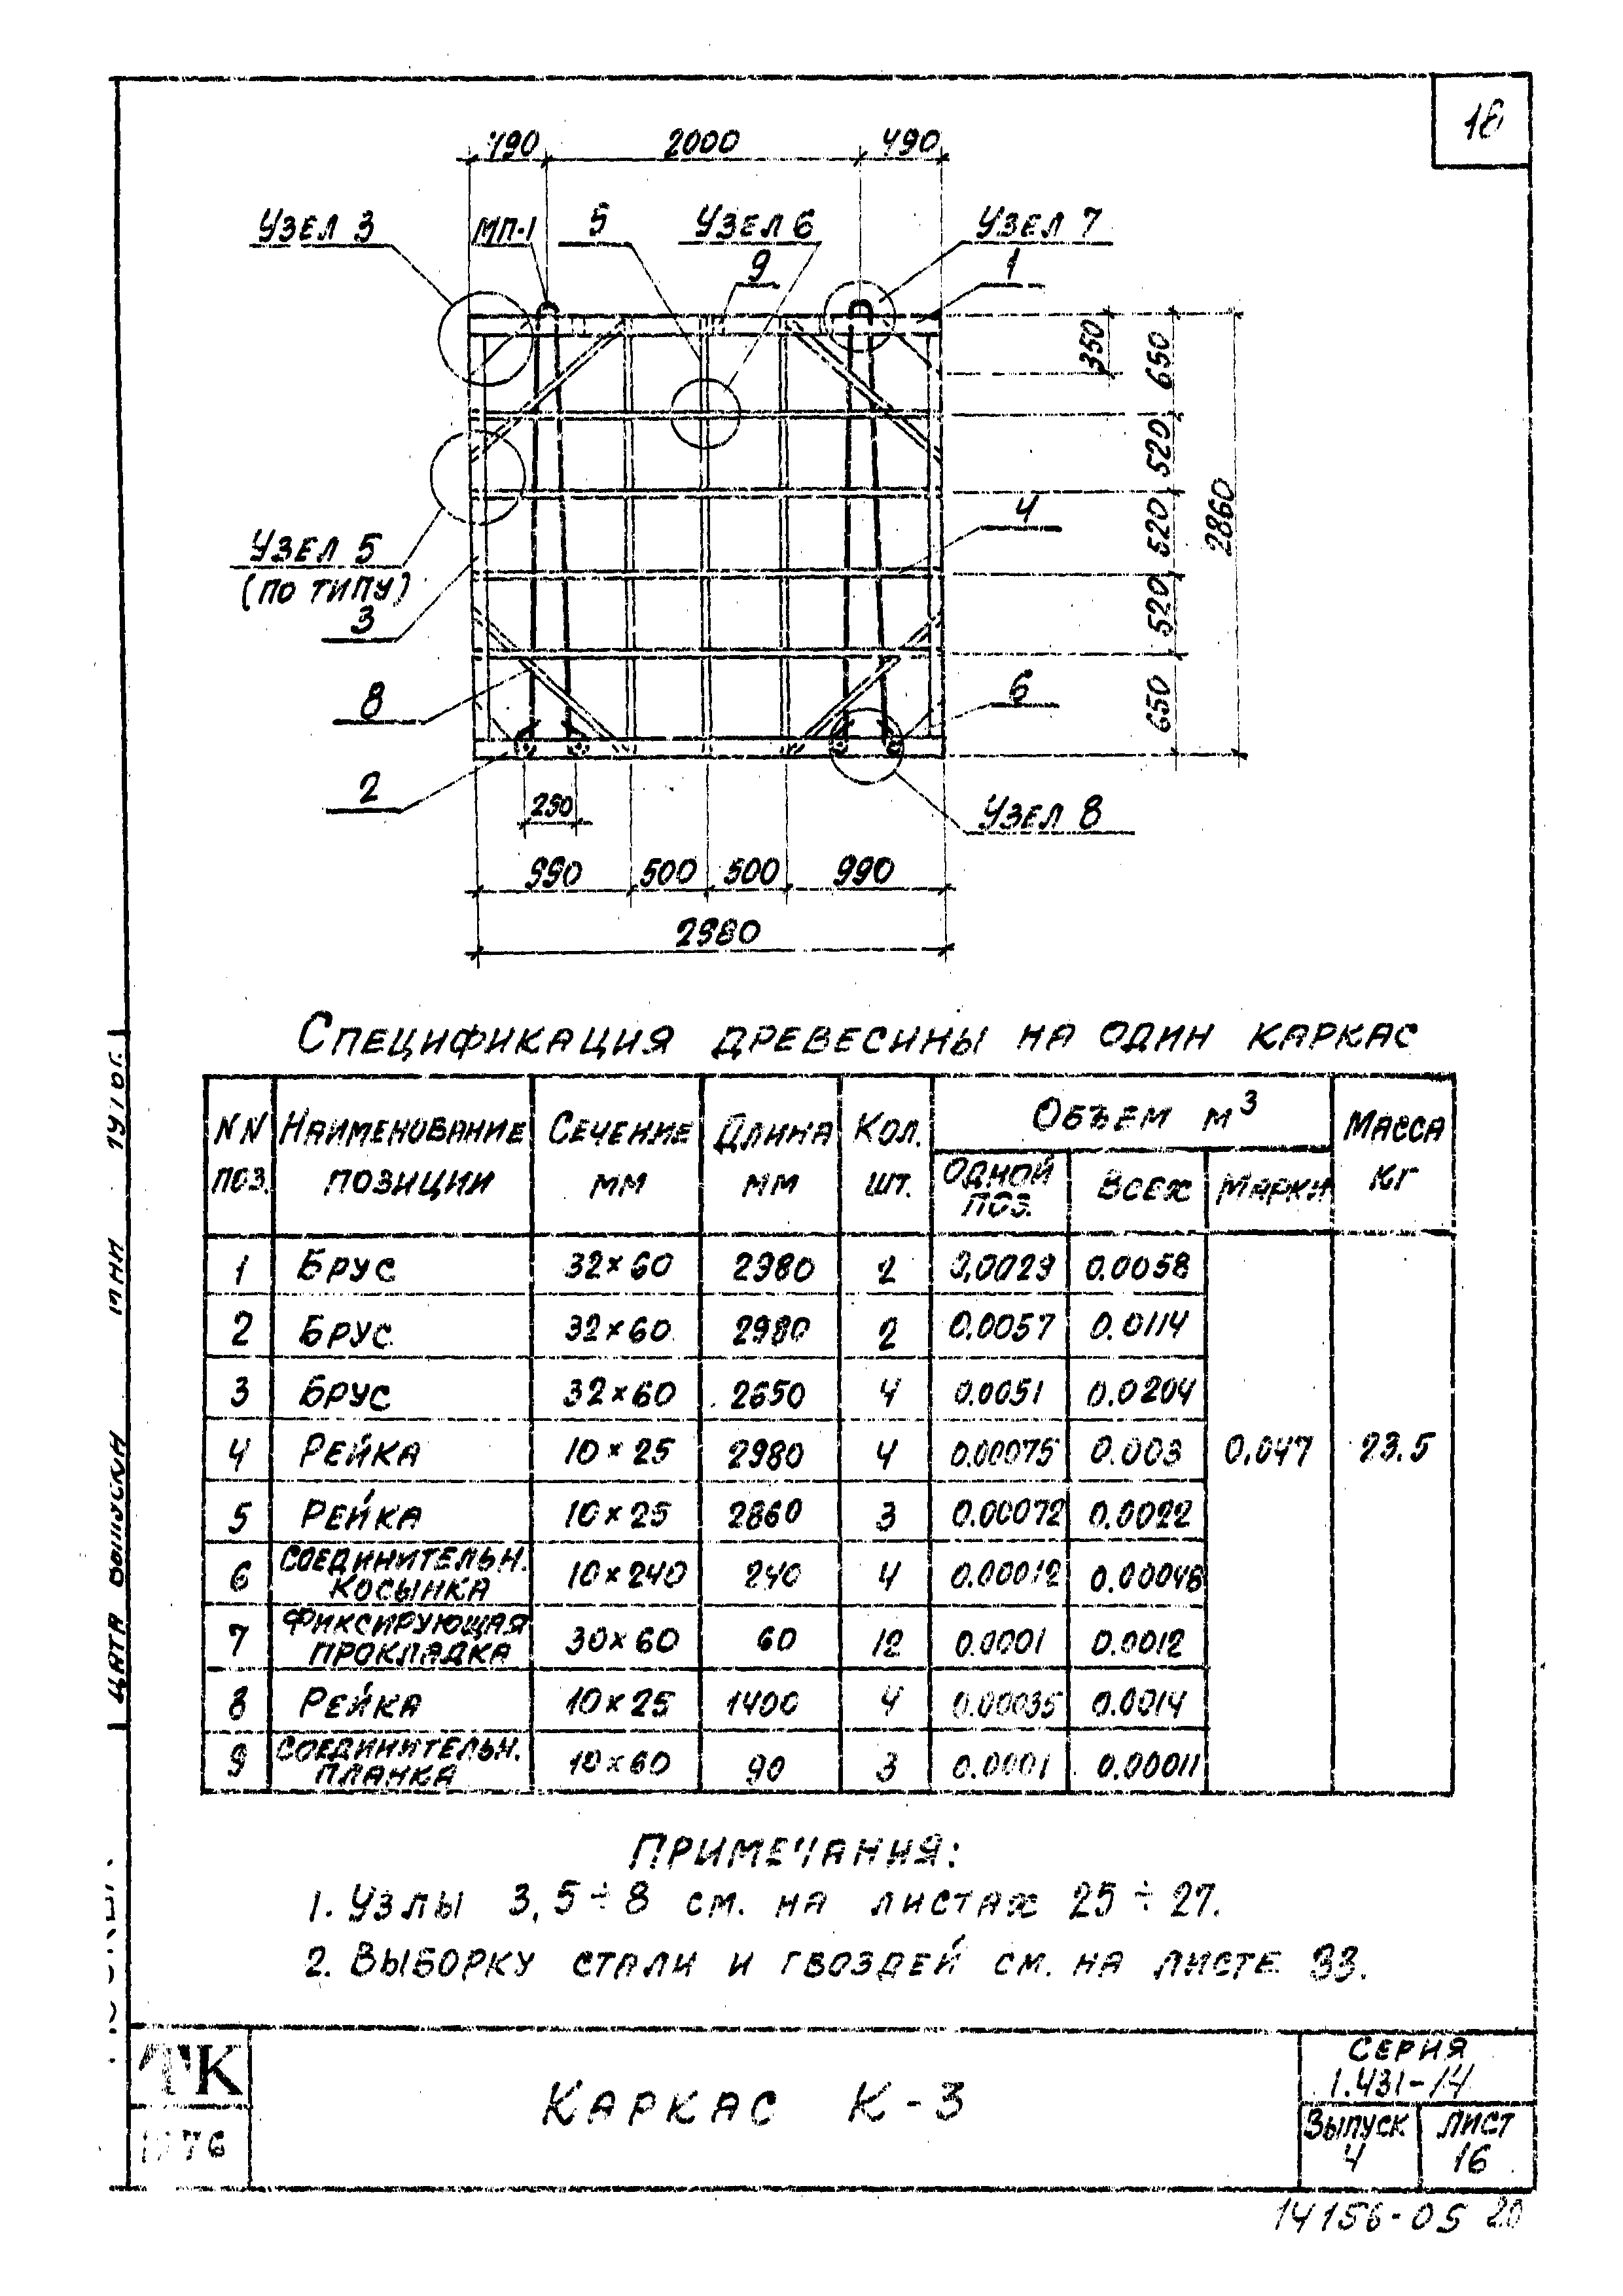 18
490 2000 490
УЗЕЛ 3
МП-1
5
УЗЕЛ 6
9
УЗЕЛ 7
1
350
650
520
520
520
650
2860
4
УЗЕЛ 5
(ПО ТИПУ)
3
8
6
2
УЗЕЛ 8
290
990 500 500 990
2980
СПЕЦИФИКАЦИЯ ДРЕВЕСИНЫ НА ОДИН КАРКАС
NN ПОЗ. НАИМЕНОВАНИЕ ПОЗИЦИИ СЕЧЕНИЕ ММ ДЛИНА ММ КОЛ. ШТ. ОБЪЕМ М³ МАССА КГ
ОДНОЙ ПОЗ. ВСЕХ МАРКИ
1 БРУС 32×60 2980 2 0,0029 0.0058
2 БРУС 32×60 2980 2 0.0057 0.0114
3 БРУС 32×60 2650 4 0.0051 0.0204
4 РЕЙКА 10×25 2980 4 0.00075 0.003 0.047 23.5
5 РЕЙКА 10×25 2860 3 0.00072 0.0022
6 СОЕДИНИТЕЛЬН. КОСЫНКА 10×240 240 4 0.00012 0.00048
7 ФИКСИРУЮЩАЯ ПРОКЛАДКА 30×60 60 12 0.0001 0.0012
8 РЕЙКА 10×25 1400 4 0.00035 0.0014
9 СОЕДИНИТЕЛЬН. ПЛАНКА 10×60 90 3 0.0001 0.00011
ПРИМЕЧАНИЯ:
1. УЗЛЫ 3, 5÷8 СМ. НА ЛИСТАХ 25÷27.
2. ВЫБОРКУ СТАЛИ И ГВОЗДЕЙ СМ. НА ЛИСТЕ 33.
ТК
1976
КАРКАС К-3
СЕРИЯ
1.431-14
ВЫПУСК
4
ЛИСТ
16
14156-05 20
ДАТА ВЫПУСКА